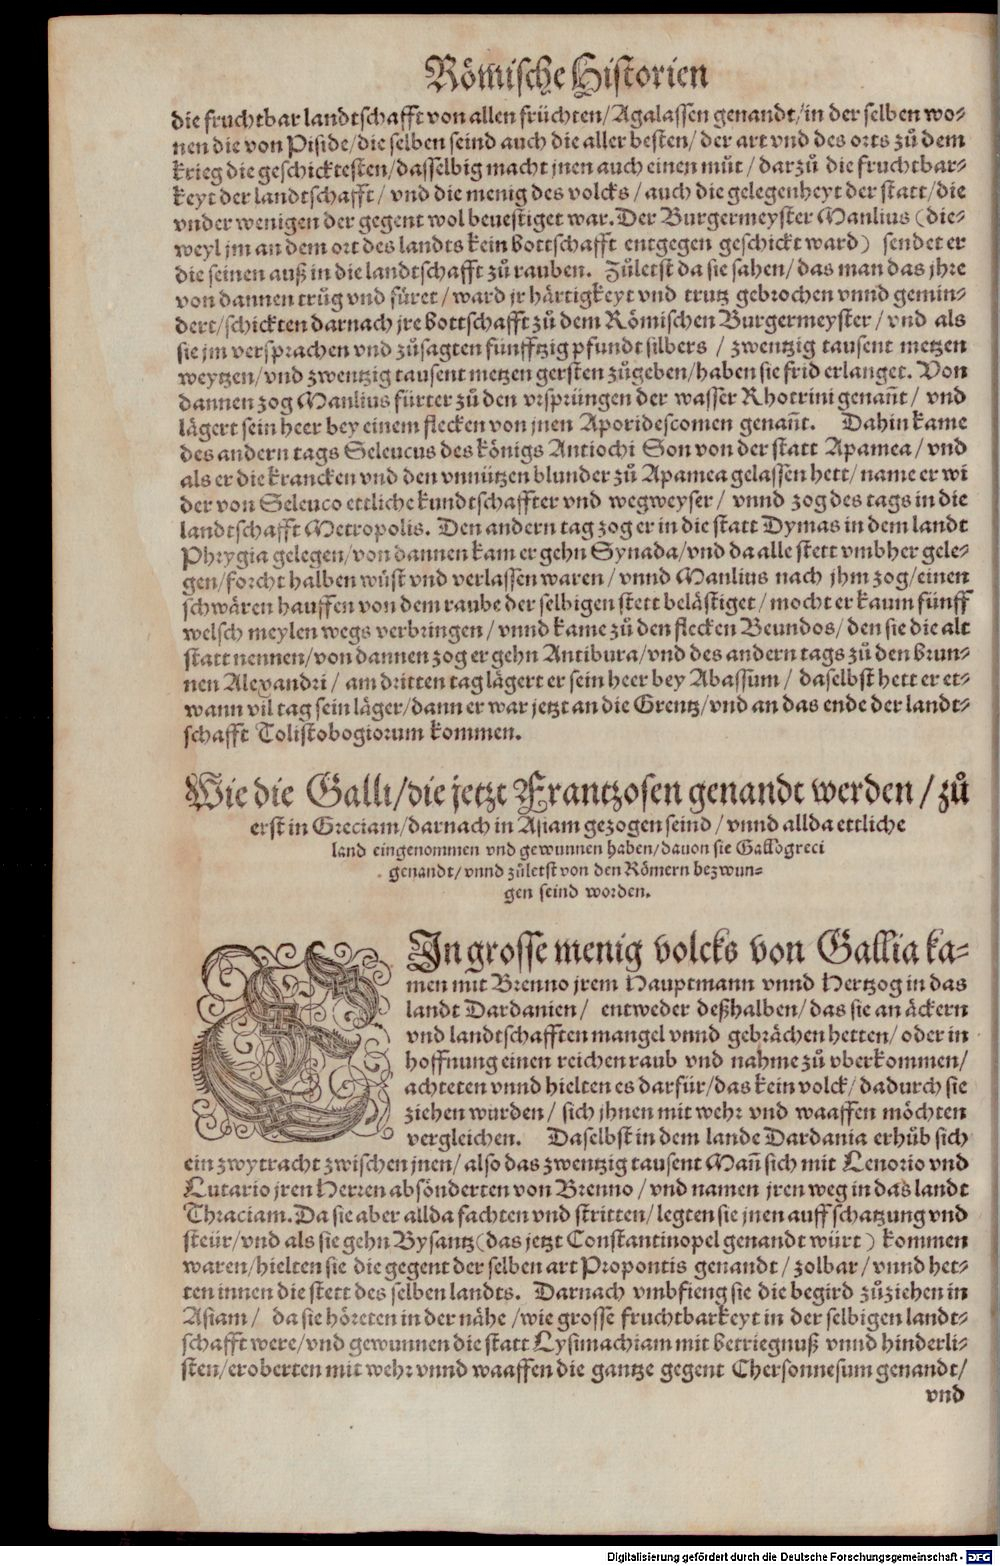 Römische Historien
die fruchtbar landtschafft von allen früchten/Agalassen genandt/in der selben wo-
nen die von Piside/die selben seind auch die aller besten/ der art vnd des orts zů dem
krieg die geschicktesten/dasselbig macht jnen auch einen můt / darzů die fruchtbar-
keyt der landtschafft/ vnd die menig des volcks/ auch die gelegenheyt der statt/die
vnder wenigen der gegent wol beuestiget war. Der Burgermeyster Manlius (die-
weyl jm an dem ort des landts kein bottschafft entgegen geschickt ward) sendet er
die seinen auß in die landtschafft zů rauben. Zůletst da sie sahen/ das man das jhre
von dannen trůg vnd fůret/ ward jr härtigkeyt vnd trutz gebrochen vnnd gemin-
dert/schickten darnach jre bottschafft zů dem Römischen Burgermeyster/ vnd als
sie jm versprachen vnd zůsagten fünfftzig pfundt silbers / zwentzig tausent metzen
weytzen/vnd zwentzig tausent metzen gersten zůgeben/haben sie frid erlanget. Von
dannen zog Manlius fürter zů den vrsprüngen der wasser Rhotrini genañt/ vnd
lägert sein heer bey einem flecken von jnen Aporidescomen genañt. Dahin kame
des andern tags Seleucus des königs Antiochi Son von der statt Apamea/ vnd
als er die krancken vnd den vnnützen blunder zů Apamea gelassen hett/ name er wi
der von Seleuco ettliche kundtschaffter vnd wegweyser/ vnnd zog des tags in die
landtschafft Metropolis. Den andern tag zog er in die statt Dymas in dem landt
Phrygia gelegen/von dannen kam er gehn Synada/vnd da alle stett vmbher gele-
gen/forcht halben wůst vnd verlassen waren/ vnnd Manlius nach jhm zog/einen
schwären hauffen von dem raube der selbigen stett belästiget/ mocht er kaum fünff
welsch meylen wegs verbringen/ vnnd kame zů den flecken Beundos/ den sie die alt
statt nennen/von dannen zog er gehn Antibura/vnd des andern tags zů den brun-
nen Alexandri/ am dritten tag lägert er sein heer bey Abassum/ daselbst hett er et-
wann vil tag sein läger/dann er war jetzt an die Grentz/vnd an das ende der landt-
schafft Tolistobogiorum kommen.
Wie die Galli/die jetzt Frantzosen genandt werden / zů
erst in Greciam/darnach in Asiam gezogen seind / vnnd allda ettliche
land eingenommen vnd gewunnen haben/dauon sie Gallogreci
genandt/vnnd zůletst von den Römern bezwun-
gen seind worden.
EIn grosse menig volcks von Gallia ka-
men mit Brenno jrem Hauptmann vnnd Hertzog in das
landt Dardanien/ entweder deßhalben/das sie an äckern
vnd landtschafften mangel vnnd gebrächen hetten/ oder in
hoffnung einen reichen raub vnd nahme zů vberkommen/
achteten vnnd hielten es darfür/das kein volck/ dadurch sie
ziehen wurden/ sich jhnen mit wehr vnd waaffen möchten
vergleichen. Daselbst in dem lande Dardania erhůb sich
ein zwytracht zwischen jnen/ also das zwentzig tausent Mañ sich mit Lenorio vnd
Lutario jren Herren absönderten von Brenno/ vnd namen jren weg in das landt
Thraciam. Da sie aber allda fachten vnd stritten/ legten sie jnen auff schatzung vnd
steür/vnd als sie gehn Bysantz(das jetzt Constantinopel genandt würt) kommen
waren/hielten sie die gegent der selben art Propontis genandt/ zolbar/ vnnd het-
ten innen die stett des selben landts. Darnach vmbfieng sie die begird zůziehen in
Asiam/ da sie höreten in der nähe /wie grosse fruchtbarkeyt in der selbigen landt-
schafft were/vnd gewunnen die statt Lysimachiam mit betriegnuß vnnd hinderli-
sten/eroberten mit wehr vnnd waaffen die gantze gegent Chersonnesum genandt/
vnd
Digitalisierung gefördert durch die Deutsche Forschungsgemeinschaft - DFG